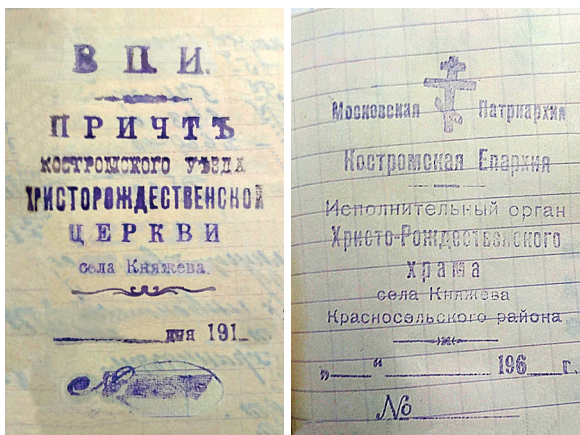 В П И.
ПРИЧТЪ
КОСТРОМСКОГО УѢЗДА
ХРИСТОРОЖДЕСТВЕНСКОЙ
ЦЕРКВИ
села Княжева.
дня 191_
№
Московская Патриархия
Костромская Епархия
Исполнительный орган
Христо-Рождественского
храма
села Княжева
Красносельского района
„___“ ________ 196__ г.
№ ________